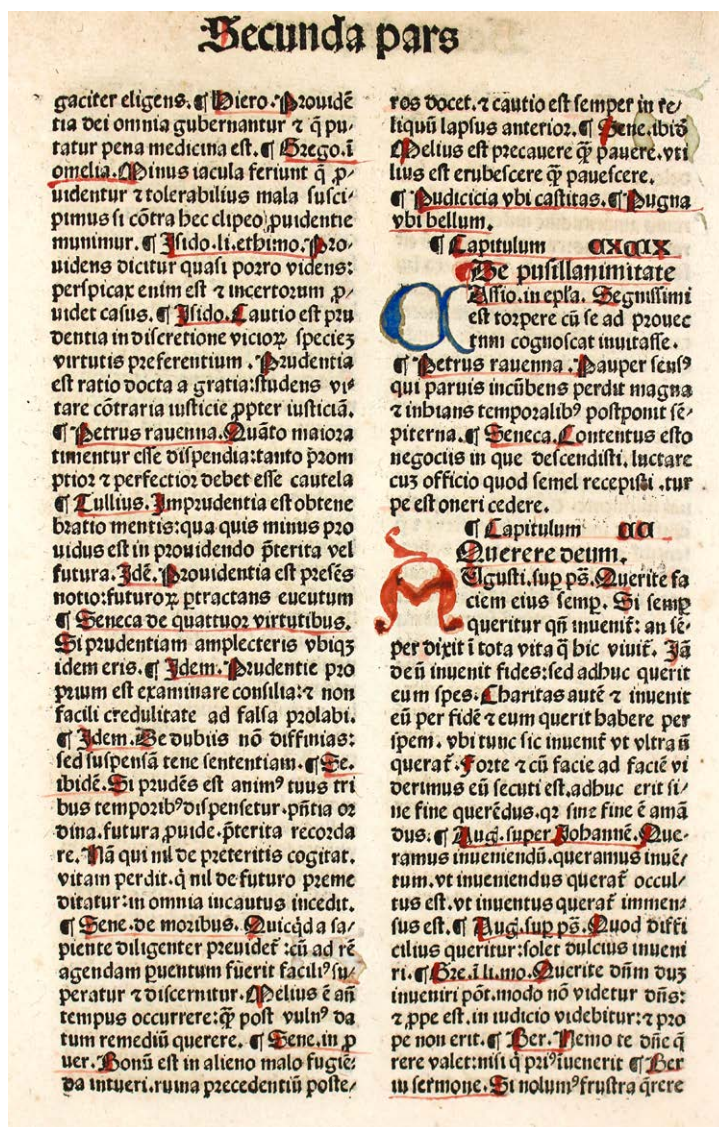 Secunda pars
gaciter eligens. ¶ Hiero. Prouidē
tia dei omnia gubernantur ⁊ q̄ pu-
tatur pena medicina est. ¶ Grego. ī
omelia. Minus iacula feriunt q̄ p̱-
uidentur ⁊ tolerabilius mala susci-
pimus si cōtra hec clipeo p̱uidentie
munimur. ¶ Isido. li. ethimo. Pro-
uidens dicitur quasi porro videns:
perspicax enim est ⁊ incertorum p̱-
uidet casus. ¶ Isido. Cautio est pru
dentia in discretione vicioꝝ specieȝ
virtutis preferentium. Prudentia
est ratio docta a gratia: studens vi-
tare cōtraria iusticie p̱pter iusticiā.
¶ Petrus rauenna. Quāto maiora
timentur esse dispendia: tanto p̄rom
ptior ⁊ perfectior debet esse cautela
¶ Tullius. Imprudentia est obtene
bratio mentis: qua quis minus pro
uidus est in prouidendo p̄terita vel
futura. Idē. Prouidentia est presēs
notio: futuroꝝ ꝑtractans eueutum
¶ Seneca de quattuor virtutibus.
Si prudentiam amplecteris vbiqȝ
idem eris. ¶ Idem. Prudentie pro
prium est examinare consilia: ⁊ non
facili credulitate ad falsa prolabi.
¶ Idem. De dubiis nō diffinias:
sed suspensā tene sententiam. ¶ Se.
ibidē. Si prudēs est animꝰ tuus tri
bus temporibꝰ dispensetur. p̄ntia or
dina. futura p̱uide. p̄terita recorda
re. Nā qui nil de preteritis cogitat.
vitam perdit. q̇ nil de futuro preme
ditatur: in omnia iucautus incedit.
¶ Sene. de moribus. Quicq̇d a sa-
piente diligenter preuidet̄: cū ad rē
agendam ꝑuentum fuerit faciliꝰ su-
peratur ⁊ discernitur. Melius ē an̄
tempus occurrere: q̄ꝫ post vulnꝰ da
tum remediū querere. ¶ Sene. in p̱
uer. Bonū est in alieno malo fugiē-
da intueri. ruina precedentiū poste-
ros docet. ⁊ cautio est semper in re-
liquū lapsus anterior. ¶ Sene. ibid̄
Melius est precauere q̄ꝫ pauere. vti
lius est erubescere q̄ꝫ pauescere.
¶ Pudicicia vbi castitas. ¶ Pugna
vbi bellum.
¶ Capitulum CXCIX
De pusillanimitate
CAssio. in epl̄a. Segnissimi
est torpere cū se ad prouec
tnm cognoscat inuitasse.
¶ Petrus rauenna. Pauper sensꝰ
qui paruis incūbens perdit magna
⁊ inhians temporalibꝰ postponit sē-
piterna. ¶ Seneca. Contentus esto
negociis in que descendisti. luctare
cuȝ officio quod semel recepisti. tur
pe est oneri cedere.
¶ Capitulum CC
Querere deum.
AUgusti. sup̱ ps̄. Querite fa
ciem eius semp̱. Si semp̱
queritur qn̄ inuenit̄: an sē-
per dixit ī tota vita q̄ hic viuit̄. Iā
deū inuenit fides: sed adhuc querit
eum spes. Charitas autē ⁊ inuenit
eū per fidē ⁊ eum querit habere per
spem. vbi tunc sic inuenit̄ vt vltra n̄
querat̄. Forte ⁊ cū facie ad faciē vi
derimus eū secuti est. adhuc erit si-
ne fine querēdus. qꝛ sine fine ē amā
dus. ¶ Aug. super Johannē. Que-
ramus inueniendū. queramus inuē-
tum. vt inueniendus querat̄ occul-
tus est. vt inuentus querat̄ immen-
sus est. ¶ Aug. sup̱ ps̄. Quod diffi
cilius queritur: solet dulcius inueni
ri. ¶ Gre. ī li. mo. Querite dn̄m duȝ
inueniri pōt. modo nō videtur dn̄s:
⁊ p̱pe est. in iudicio videbitur: ⁊ pro
pe non erit. ¶ Ber. Nemo te dn̄e q̄
rere valet: nisi q̇ priꝰ iuenerit ¶ Ber
in sermone. Si nolumꝰ frustra q̄rere